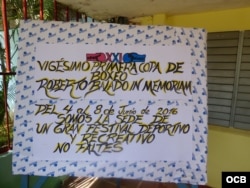 XXI
VIGESIMO PRIMERA COPA DE
BOXEO
ROBERTO BALADO IN MEMORIAM
DEL 4 al 8 de Junio de 2016
SOMOS LA SEDE DE
UN GRAN FESTIVAL DEPORTIVO
RECREATIVO
NO FALTES
OCB